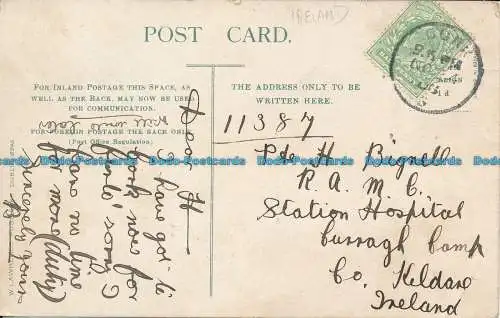 IRELAND
POST CARD.
FOR INLAND POSTAGE THIS SPACE, AS
WELL AS THE BACK, MAY NOW BE USED
FOR COMMUNICATION.
FOR FOREIGN POSTAGE THE BACK ONLY
(Post Office Regulation)
will write later
Dear H
I have got to
work now for
I have no time
for more (duty)
sincerely yours
B
THE ADDRESS ONLY TO BE
WRITTEN HERE.
11387
Pte H. Bignell
R. A. M. C.
Station Hospital
Curragh Camp
Co. Keldare
Ireland
Dodo-Postcards